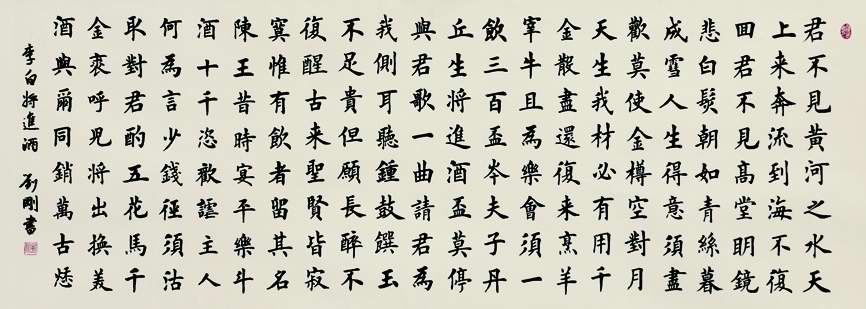 君不見黃河之水天
上来奔流到海不復
囬君不見高堂明鏡
悲白髮朝如青絲暮
成雪人生得意須盡
歡莫使金樽空對月
天生我材必有用千
金散盡還復来烹羊
宰牛且為樂會須一
飲三百盃岑夫子丹
丘生將進酒盃莫停
與君歌一曲請君為
我側耳聽鍾鼓饌玉
不足貴但願長醉不
復醒古来聖賢皆寂
寞惟有飲者留其名
陳王昔時宴平樂斗
酒十千恣歡謔主人
何為言少錢徑須沽
取對君酌五花馬千
金裘呼兒將出換美
酒與爾同銷萬古愁
李白將進酒 劉剛書